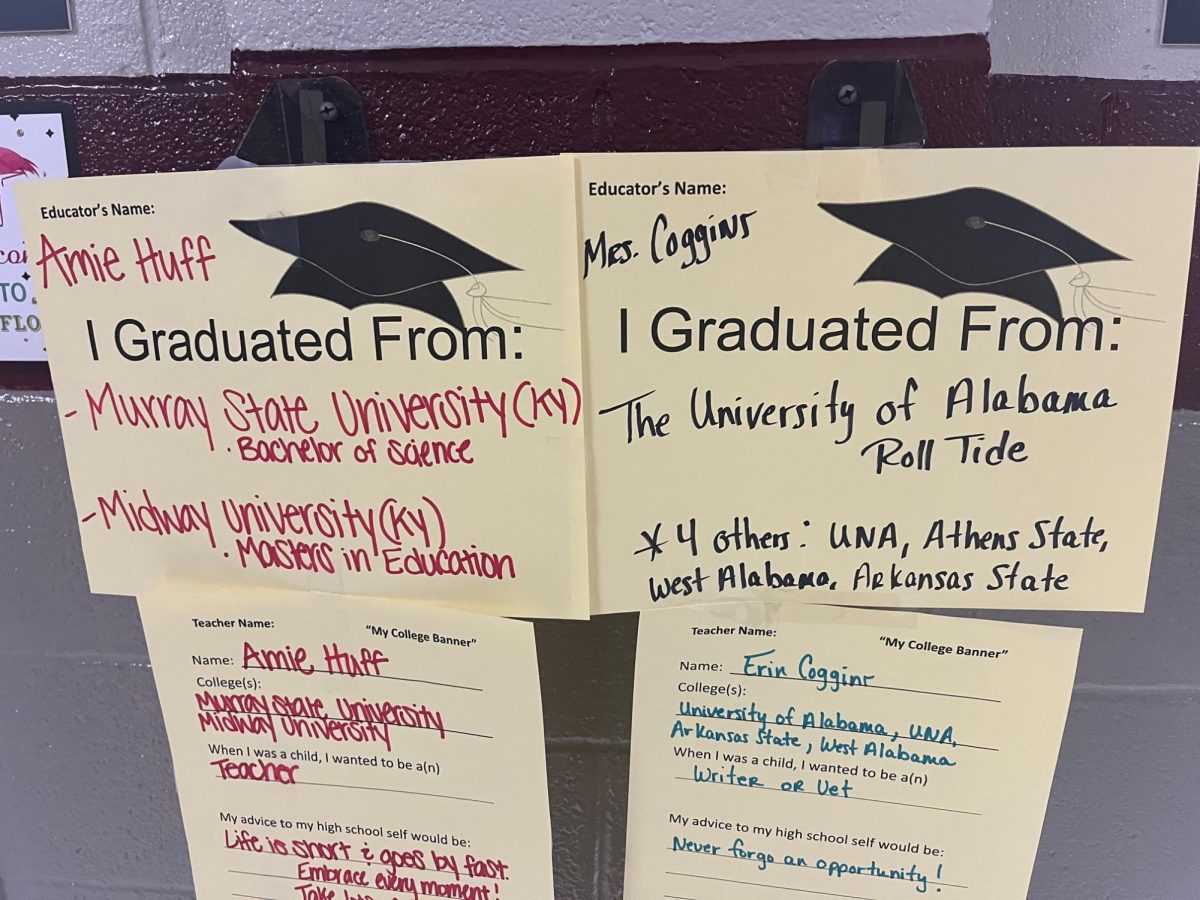 Educator's Name:
Amie Huff
I Graduated From:
- Murray State University (KY)
· Bachelor of Science
- Midway University (KY)
· Masters in Education
Educator's Name:
Mrs. Coggins
I Graduated From:
The University of Alabama
Roll Tide
* 4 others: UNA, Athens State,
West Alabama, Arkansas State
Teacher Name:
"My College Banner"
Name: Amie Huff
College(s):
Murray State University
Midway University
When I was a child, I wanted to be a(n)
Teacher
My advice to my high school self would be:
Life is short & goes by fast.
Embrace every moment!
Take
Teacher Name:
"My College Banner"
Name: Erin Coggins
College(s):
University of Alabama, UNA,
Arkansas State, West Alabama
When I was a child, I wanted to be a(n)
Writer or Vet
My advice to my high school self would be:
Never forgo an opportunity!
TO
FLO